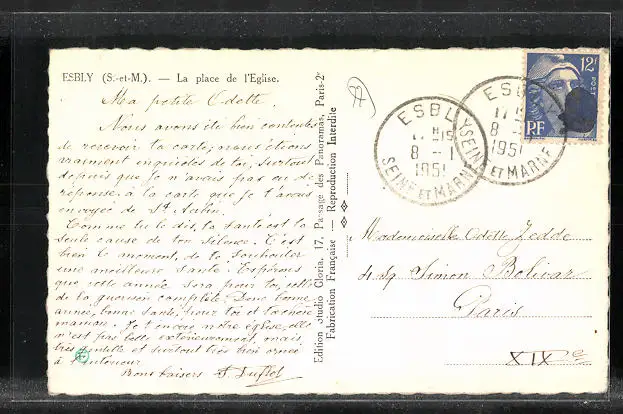 ESBLY (S.-et-M.). — La place de l'Eglise.
Ma petite Odette,
Nous avons été bien contentes
de recevoir ta carte, nous étions
vraiment inquiètes de toi, surtout
depuis que je n'avais pas eu de
réponse à la carte que je t'avais
envoyée de St Aubin.
Comme tu le dis, ta santé est la
seule cause de ton silence. C'est
bien le moment, de te souhaiter
une meilleure santé. Espérons
que cette année sera pour toi, celle
de la guérison complète. Donc bonne
année, bonne santé, pour toi et ta chère
maman. Je t'envoie notre église, elle
n'est pas belle extérieurement, mais
très gentille et surtout très bien ornée
à l'intérieur
Bons baisers
Edition Studio Gloria, 17, Passage des Panoramas, Paris-2e
Fabrication Française — Reproduction Interdite
73
ESBLY
8 - 1
1951
SEINE ET MARNE
ESBLY
8 - 1
1951
SEINE ET MARNE
12F
POSTES
RF
Mademoiselle Odette
Simon Bolivar
Paris
XIXe